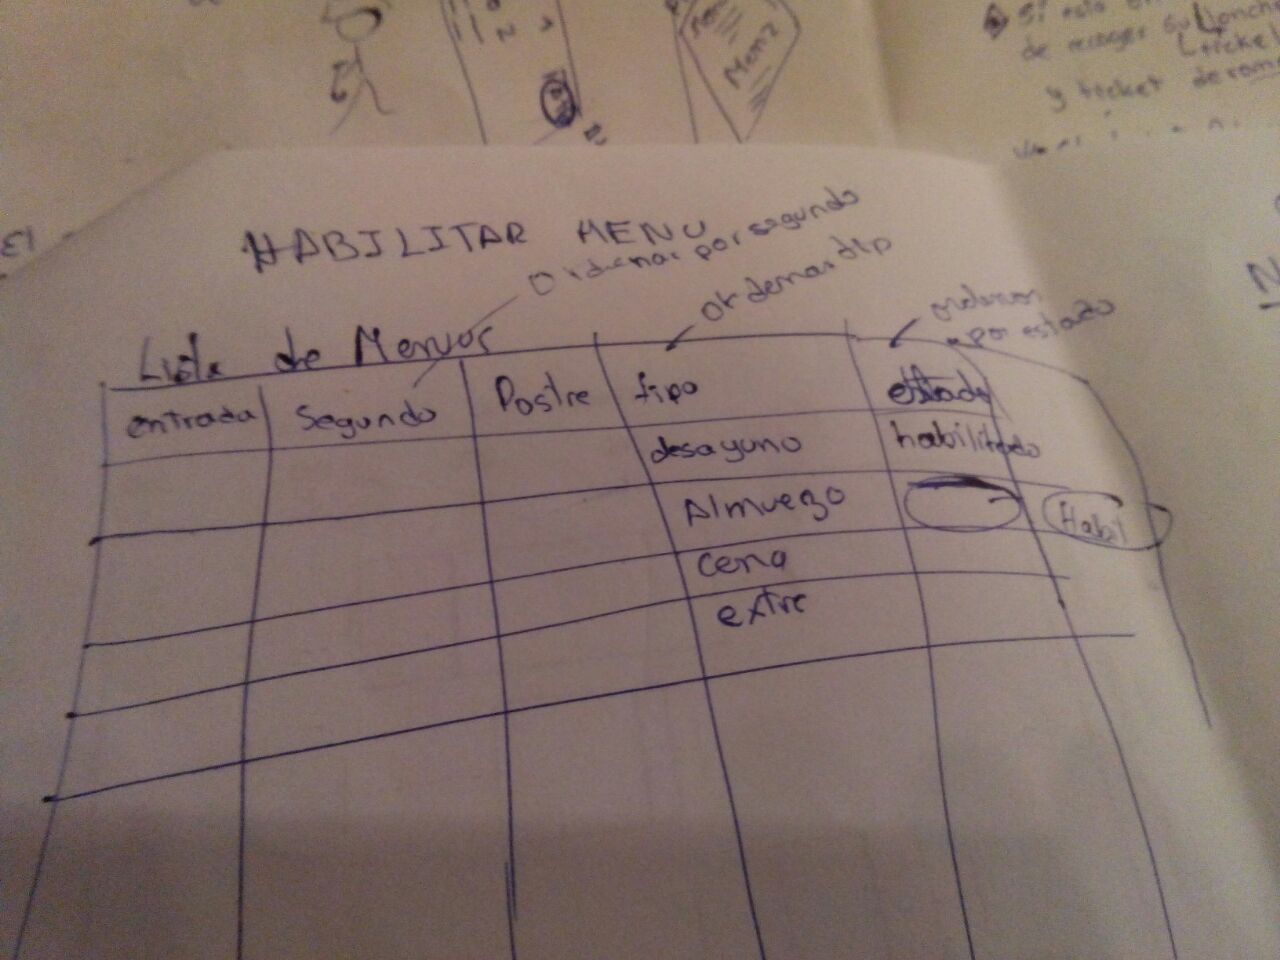 Menu
Si esta
de recoger su lonche
ticket
y ticket de
HABILITAR MENU
Ordenar por segundo
Ordenar tip
ordenar
por estado
Lista de Menus
entrada segundo Postre tipo estado
desayuno habilitado
Almuezo Habil
cena
extre